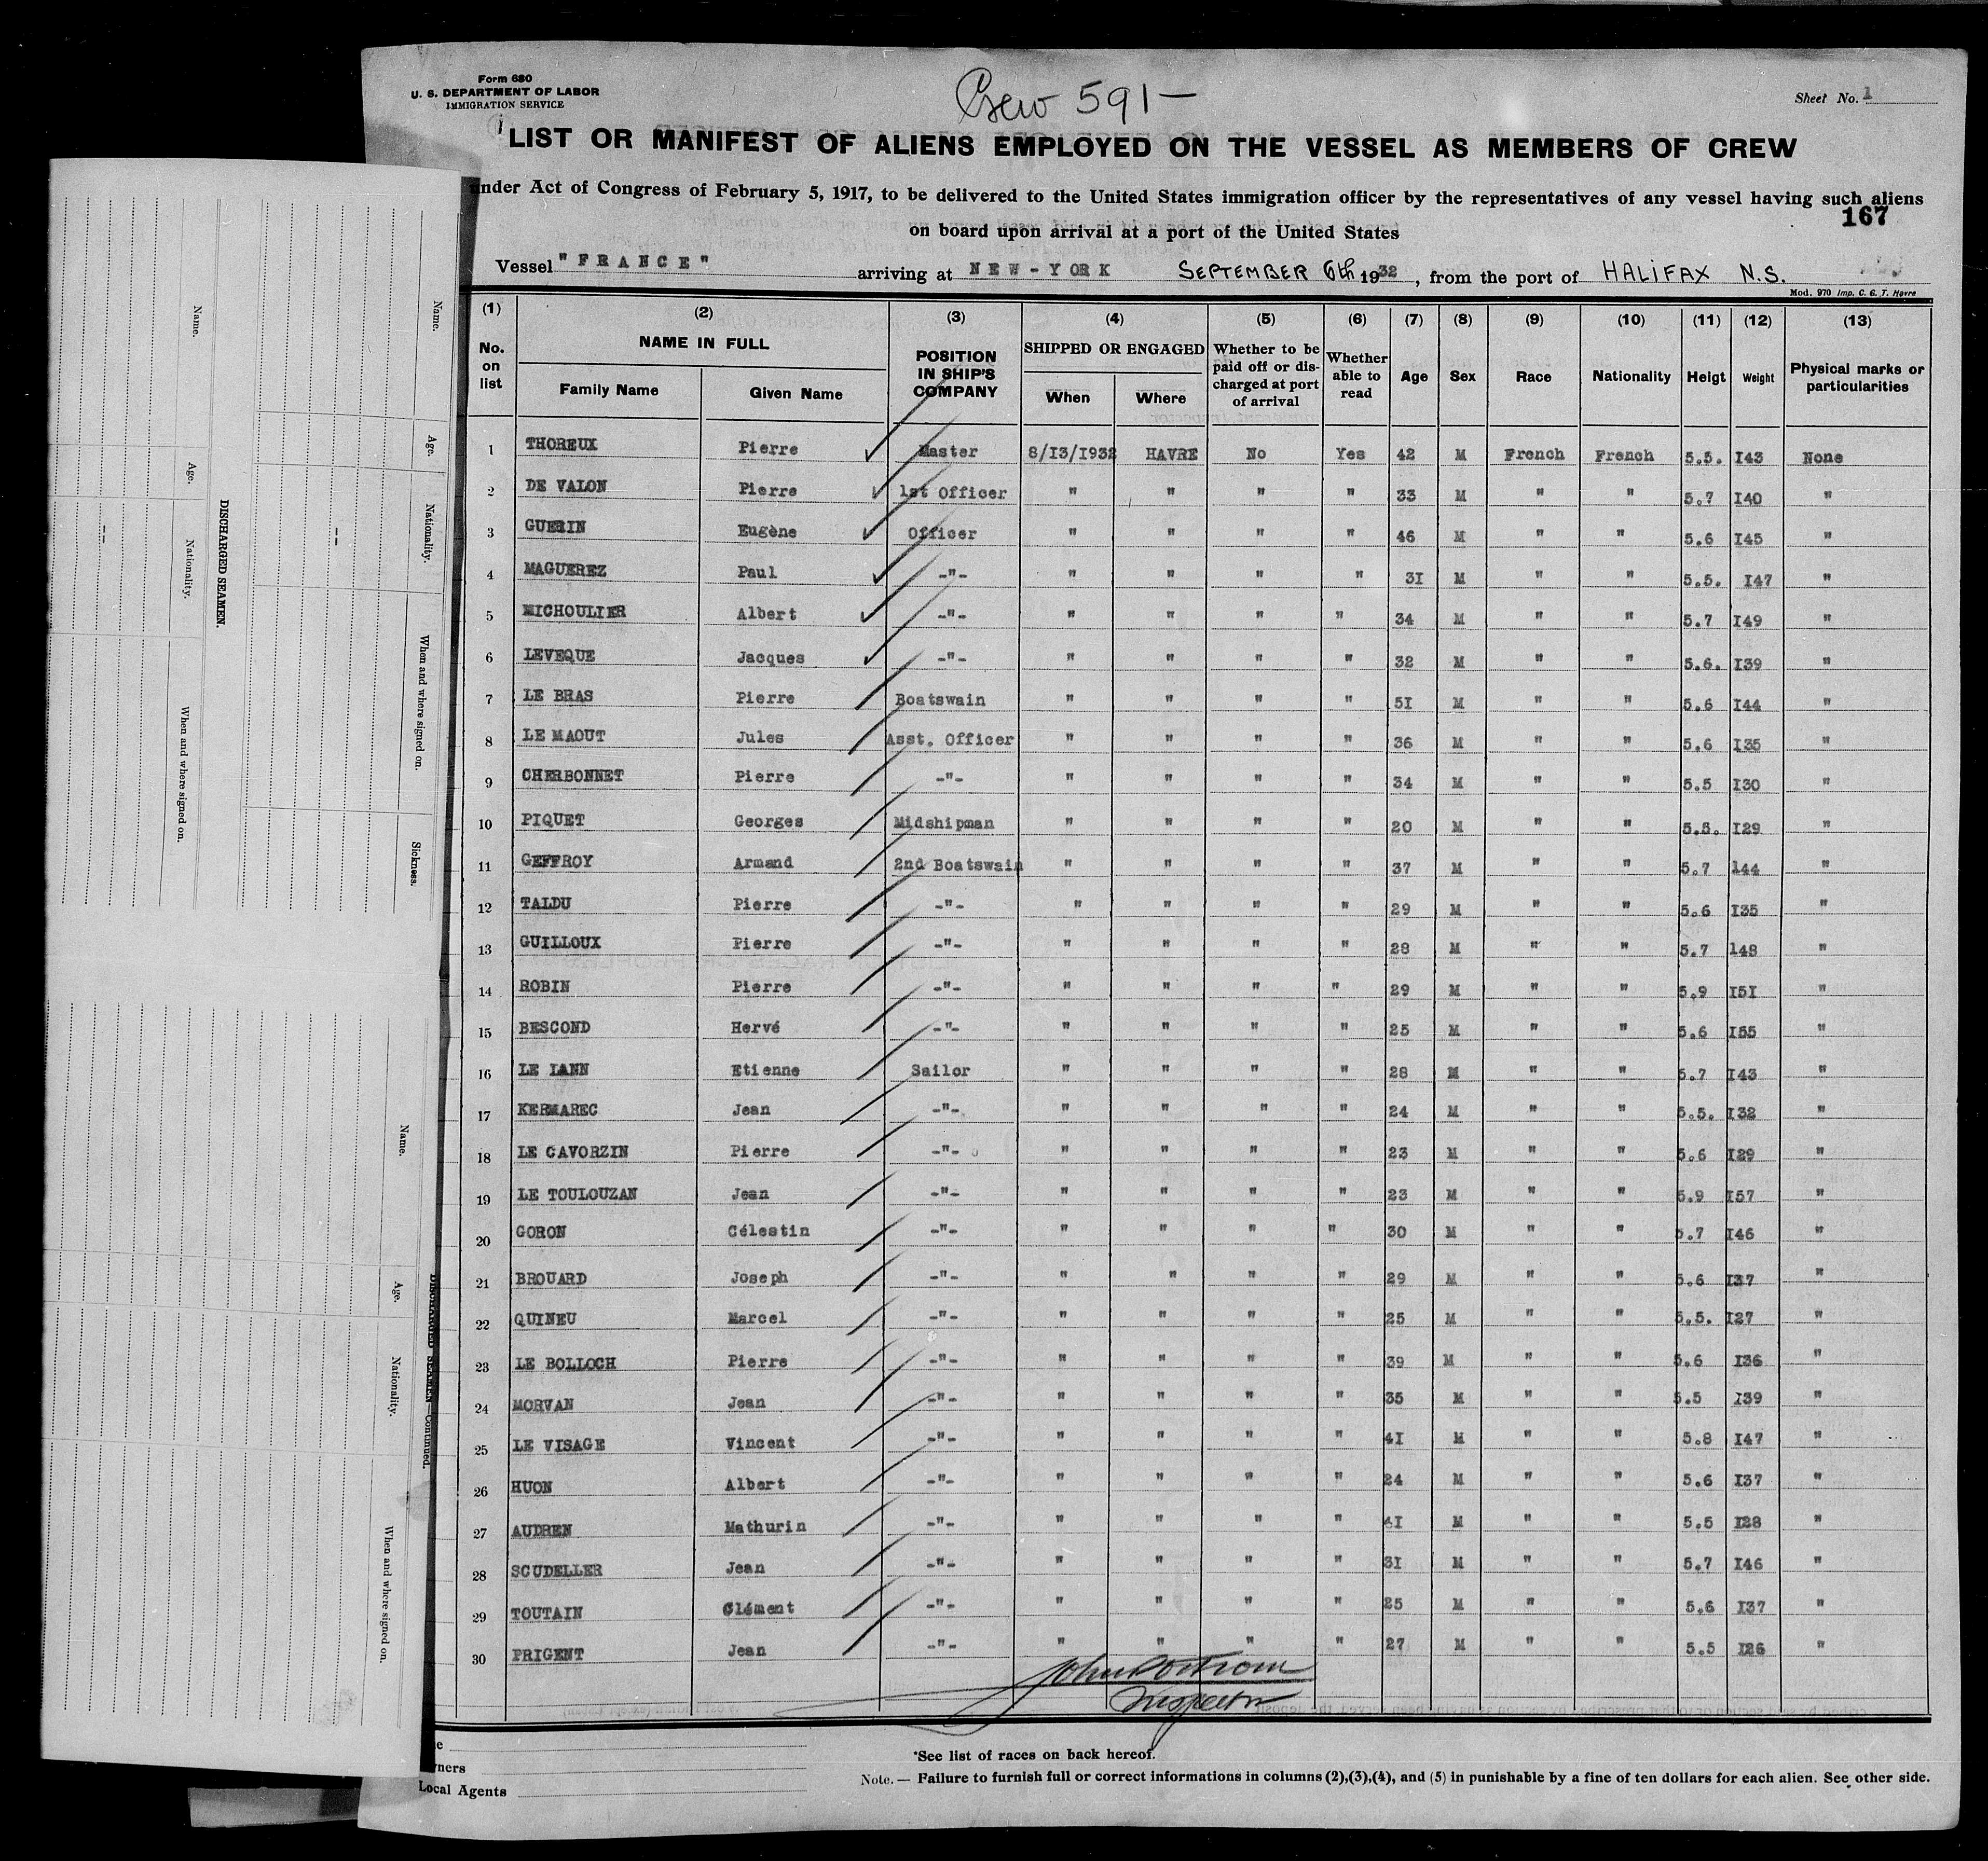 Form 680
U. S. DEPARTMENT OF LABOR
IMMIGRATION SERVICE
Crew 591-
Sheet No. 1
LIST OR MANIFEST OF ALIENS EMPLOYED ON THE VESSEL AS MEMBERS OF CREW
under Act of Congress of February 5, 1917, to be delivered to the United States immigration officer by the representatives of any vessel having such aliens
167
on board upon arrival at a port of the United States
Vessel "FRANCE" arriving at NEW-YORK SEPTEMBER 6th 1932, from the port of HALIFAX N.S.
Mod. 970 Imp. C. G. T. Havre
(1) (2) (3) (4) (5) (6) (7) (8) (9) (10) (11) (12) (13)
No. on list NAME IN FULL Family Name Given Name POSITION IN SHIP'S COMPANY SHIPPED OR ENGAGED When Where Whether to be paid off or discharged at port of arrival Whether able to read Age Sex Race Nationality Heigt Weight Physical marks or particularities
1 THOREUX Pierre Master 8/13/1932 HAVRE No Yes 42 M French French 5.5. I43 None
2 DE VALON Pierre 1st Officer " " " " 33 M " " 5.7 I40 "
3 GUERIN Eugène Officer " " " " 46 M " " 5.6 I45 "
4 MAGUEREZ Paul -"- " " " " 3I M " " 5.5. I47 "
5 MICHOULIER Albert -"- " " " " 34 M " " 5.7 I49 "
6 LEVEQUE Jacques -"- " " " " 32 M " " 5.6. I39 "
7 LE BRAS Pierre Boatswain " " " " 5I M " " 5.6 I44 "
8 LE MAOUT Jules Asst. Officer " " " " 36 M " " 5.6 I35 "
9 CHERBONNET Pierre -"- " " " " 34 M " " 5.5 I30 "
10 PIQUET Georges Midshipman " " " " 20 M " " 5.5. I29 "
11 GEFFROY Armand 2nd Boatswain " " " " 37 M " " 5.7 144 "
12 TALDU Pierre -"- " " " " 29 M " " 5.6 I35 "
13 GUILLOUX Pierre -"- " " " " 28 M " " 5.7 148 "
14 ROBIN Pierre -"- " " " " 29 M " " 5.9 I5I "
15 BESCOND Hervé -"- " " " " 25 M " " 5.6 I55 "
16 LE IANN Etienne Sailor " " " " 28 M " " 5.7 I43 "
17 KERMAREC Jean -"- " " " " 24 M " " 5.5. I32 "
18 LE CAVORZIN Pierre -"- " " " " 23 M " " 5.6 I29 "
19 LE TOULOUZAN Jean -"- " " " " 23 M " " 5.9 I57 "
20 GORON Célestin -"- " " " " 30 M " " 5.7 I46 "
21 BROUARD Joseph -"- " " " " 29 M " " 5.6 I37 "
22 QUINEU Marcel -"- " " " " 25 M " " 5.5. I27 "
23 LE BOLLOCH Pierre -"- " " " " 39 M " " 5.6 I36 "
24 MORVAN Jean -"- " " " " 35 M " " 5.5 I39 "
25 LE VISAGE Vincent -"- " " " " 4I M " " 5.8 I47 "
26 HUON Albert -"- " " " " 24 M " " 5.6 I37 "
27 AUDREN Mathurin -"- " " " " 4I M " " 5.5 I28 "
28 SCUDELLER Jean -"- " " " " 3I M " " 5.7 I46 "
29 TOUTAIN Clément -"- " " " " 25 M " " 5.6 I37 "
30 PRIGENT Jean -"- " " " " 27 M " " 5.5 I26 "
Inspector
*See list of races on back hereof.
Note. — Failure to furnish full or correct informations in columns (2),(3),(4), and (5) in punishable by a fine of ten dollars for each alien. See other side.
Local Agents
DISCHARGED SEAMEN.
Name. Age. Nationality. When and where signed on. Sickness.
Name. Age. Nationality. When and where signed on.
DISCHARGED SEAMEN—Continued.
Name. Age. Nationality. When and where signed on.